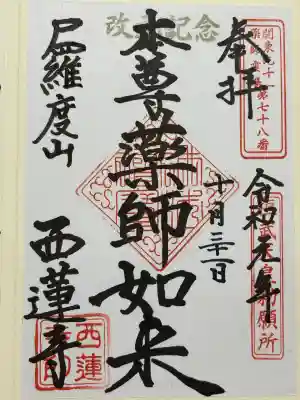 改元記念
奉拝
令和元年
十月三十一日
本尊薬師如来
尸羅度山
西蓮寺
第七十八番
武天皇勅願所
西蓮